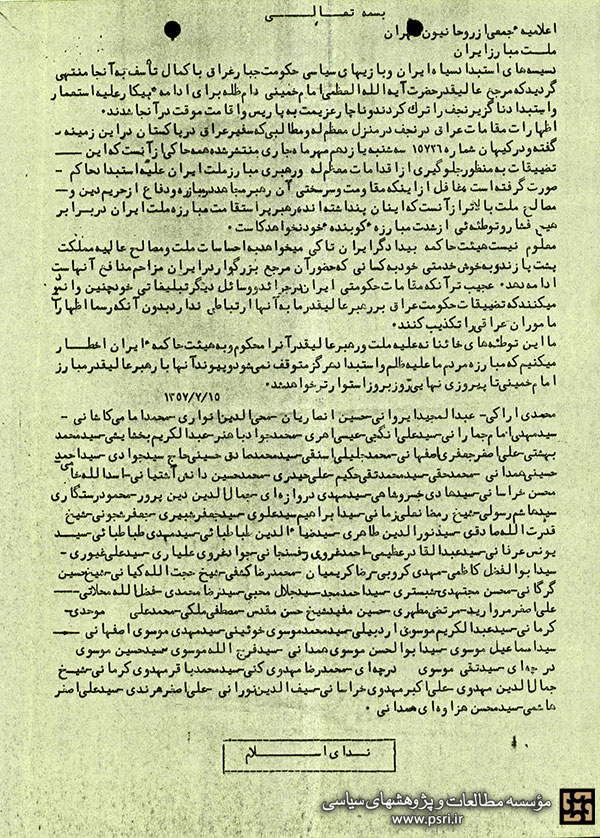 بسمه تعالی
اعلامیه جمعی از روحانیون تهران
ملت مبارز ایران
دسیسه‌های استبداد سیاه ایران و بازیهای سیاسی حکومت جبار عراق با کمال تأسف به آنجا منتهی
گردید که مرجع عالیقدر حضرت آیه الله العظمی امام خمینی دام ظله برای ادامه پیکار علیه استعمار
و استبداد ناگزیر نجف را ترک کردند و ناچار عزیمت به پاریس و اقامت موقت در آنجا شدند.
اظهارات مقامات عراق در نجف در منزل معظم له و مطالبی که سفیر عراق در پاکستان در این زمینه
گفته و در کیهان شماره ۱۵۷۲۶ سه شنبه یازدهم مهر ماه جاری منتشر شده همه حاکی از آنست که این
تضییقات به منظور جلوگیری از اقدامات معظم له و رهبری مبارز ملت ایران علیه استبداد حاکم -
صورت گرفته است غافل از اینکه مقاومت و سرسختی آن رهبر مجاهد در مبارزه و دفاع از حریم دین و
مصالح ملت بالاتر از آنست که اینان پنداشته اند رهبر پر استقامت مبارزه ملت ایران در برابر
هیچ فشار و توطئه ئی از شدت مبارزه کوبنده خود نخواهد کاست.
معلوم نیست هیئت حاکمه بیدادگر ایران تا کی میخواهد به احساسات ملت و مصالح عالیه مملکت
پشت پا زند و به خوش خدمتی خود به کسانی که حضور آن مرجع بزرگوار در ایران مزاحم منافع آنهاست
ادامه دهد. عجیب تر آنکه مقامات حکومتی ایران در جرائد و وسائل دیگر تبلیغاتی خود چنین وانمود
میکنند که تضییقات حکومت عراق بر رهبر عالیقدر ما به آنها ارتباطی ندارد بدون آنکه رسما اظهارات
ماموران عراقی را تکذیب کنند.
ما این توطئه‌های خائنانه علیه ملت و رهبر عالیقدر آنرا محکوم و به هیئت حاکمه ایران اخطار
میکنیم که مبارزه مردم ما علیه ظلم و استبداد هرگز متوقف نمی‌شود و پیوند آنها با رهبر عالیقدر مبارز
امام خمینی تا پیروزی نهایی روز بروز استوارتر خواهد شد.
۱۳۵۷/۷/۱۵
محمدی اراکی - عبدالمجید ایروانی - حسین انصاریان - محی الدین انواری - محمد امامی کاشانی -
سید مهدی امام جمارانی - سید علی انگجی - عیسی اهری - محمد جواد باهنر - عبدالکریم بخشایشی - سید محمد
بهشتی - علی اصغر جعفری اصفهانی - محمد جلیلی - سید محمد صادق حسینی حاج سید جوادی - سید احمد
حسینی همدانی - محمد حقی - سید محمد تقی حکیم - علی حیدری - محمد حسین دانش آشتیانی - اسدالله
محسن خراسانی - سید هادی خسروشاهی - سید مهدی دروازه ای - جمال الدین دین پرور - محمود رستگاری
سید هاشم رسولی - شیخ رمضانعلی زمانی - سید ابراهیم سید علوی - سید جعفر شبیری - جعفر شجونی - شیخ
قدرت الله صادقی - سید نور الدین طاهری - سید ضیاء الدین طباطبائی - سید مهدی طباطبائی - سید
یونس عرفانی - سید عبدالقادر عظیمی - احمد غروی رفسنجانی - جواد غروی علیاری - سید علی غیوری -
سید ابوالفضل کاظمی - مهدی کروبی - رضا کریمیان - محمد رضا کشفی - شیخ حجت الله کیانی - شیخ حسین
گرگانی - محسن مجتهدی شبستری - سید احمد مجد - سید جلال محبی - سید رضا محمدی - فضل الله محلاتی -
علی اصغر مروارید - مرتضی مطهری - حسین مفید - شیخ حسن مقدس - مصطفی ملکی - محمد علی موحدی -
کرمانی - سید عبدالکریم موسوی اردبیلی - سید محمد موسوی خوئینی - سید مهدی موسوی اصفهانی -
سید اسماعیل موسوی - سید ابوالحسن موسوی همدانی - سید فرج الله موسوی - سید حسین موسوی
درچه ای - سید تقی موسوی درچه ای - محمد رضا مهدوی کنی - سید محمد باقر مهدوی کرمانی - شیخ
جمال الدین مهدوی - علی اکبر مهدوی خراسانی - سیف الدین نورانی - علی اصغر هرندی - سید علی اصغر
هاشمی - سید محسن هزاوه ای همدانی.
ندای اسلام
مؤسسه مطالعات و پژوهشهای سیاسی
www.psri.ir